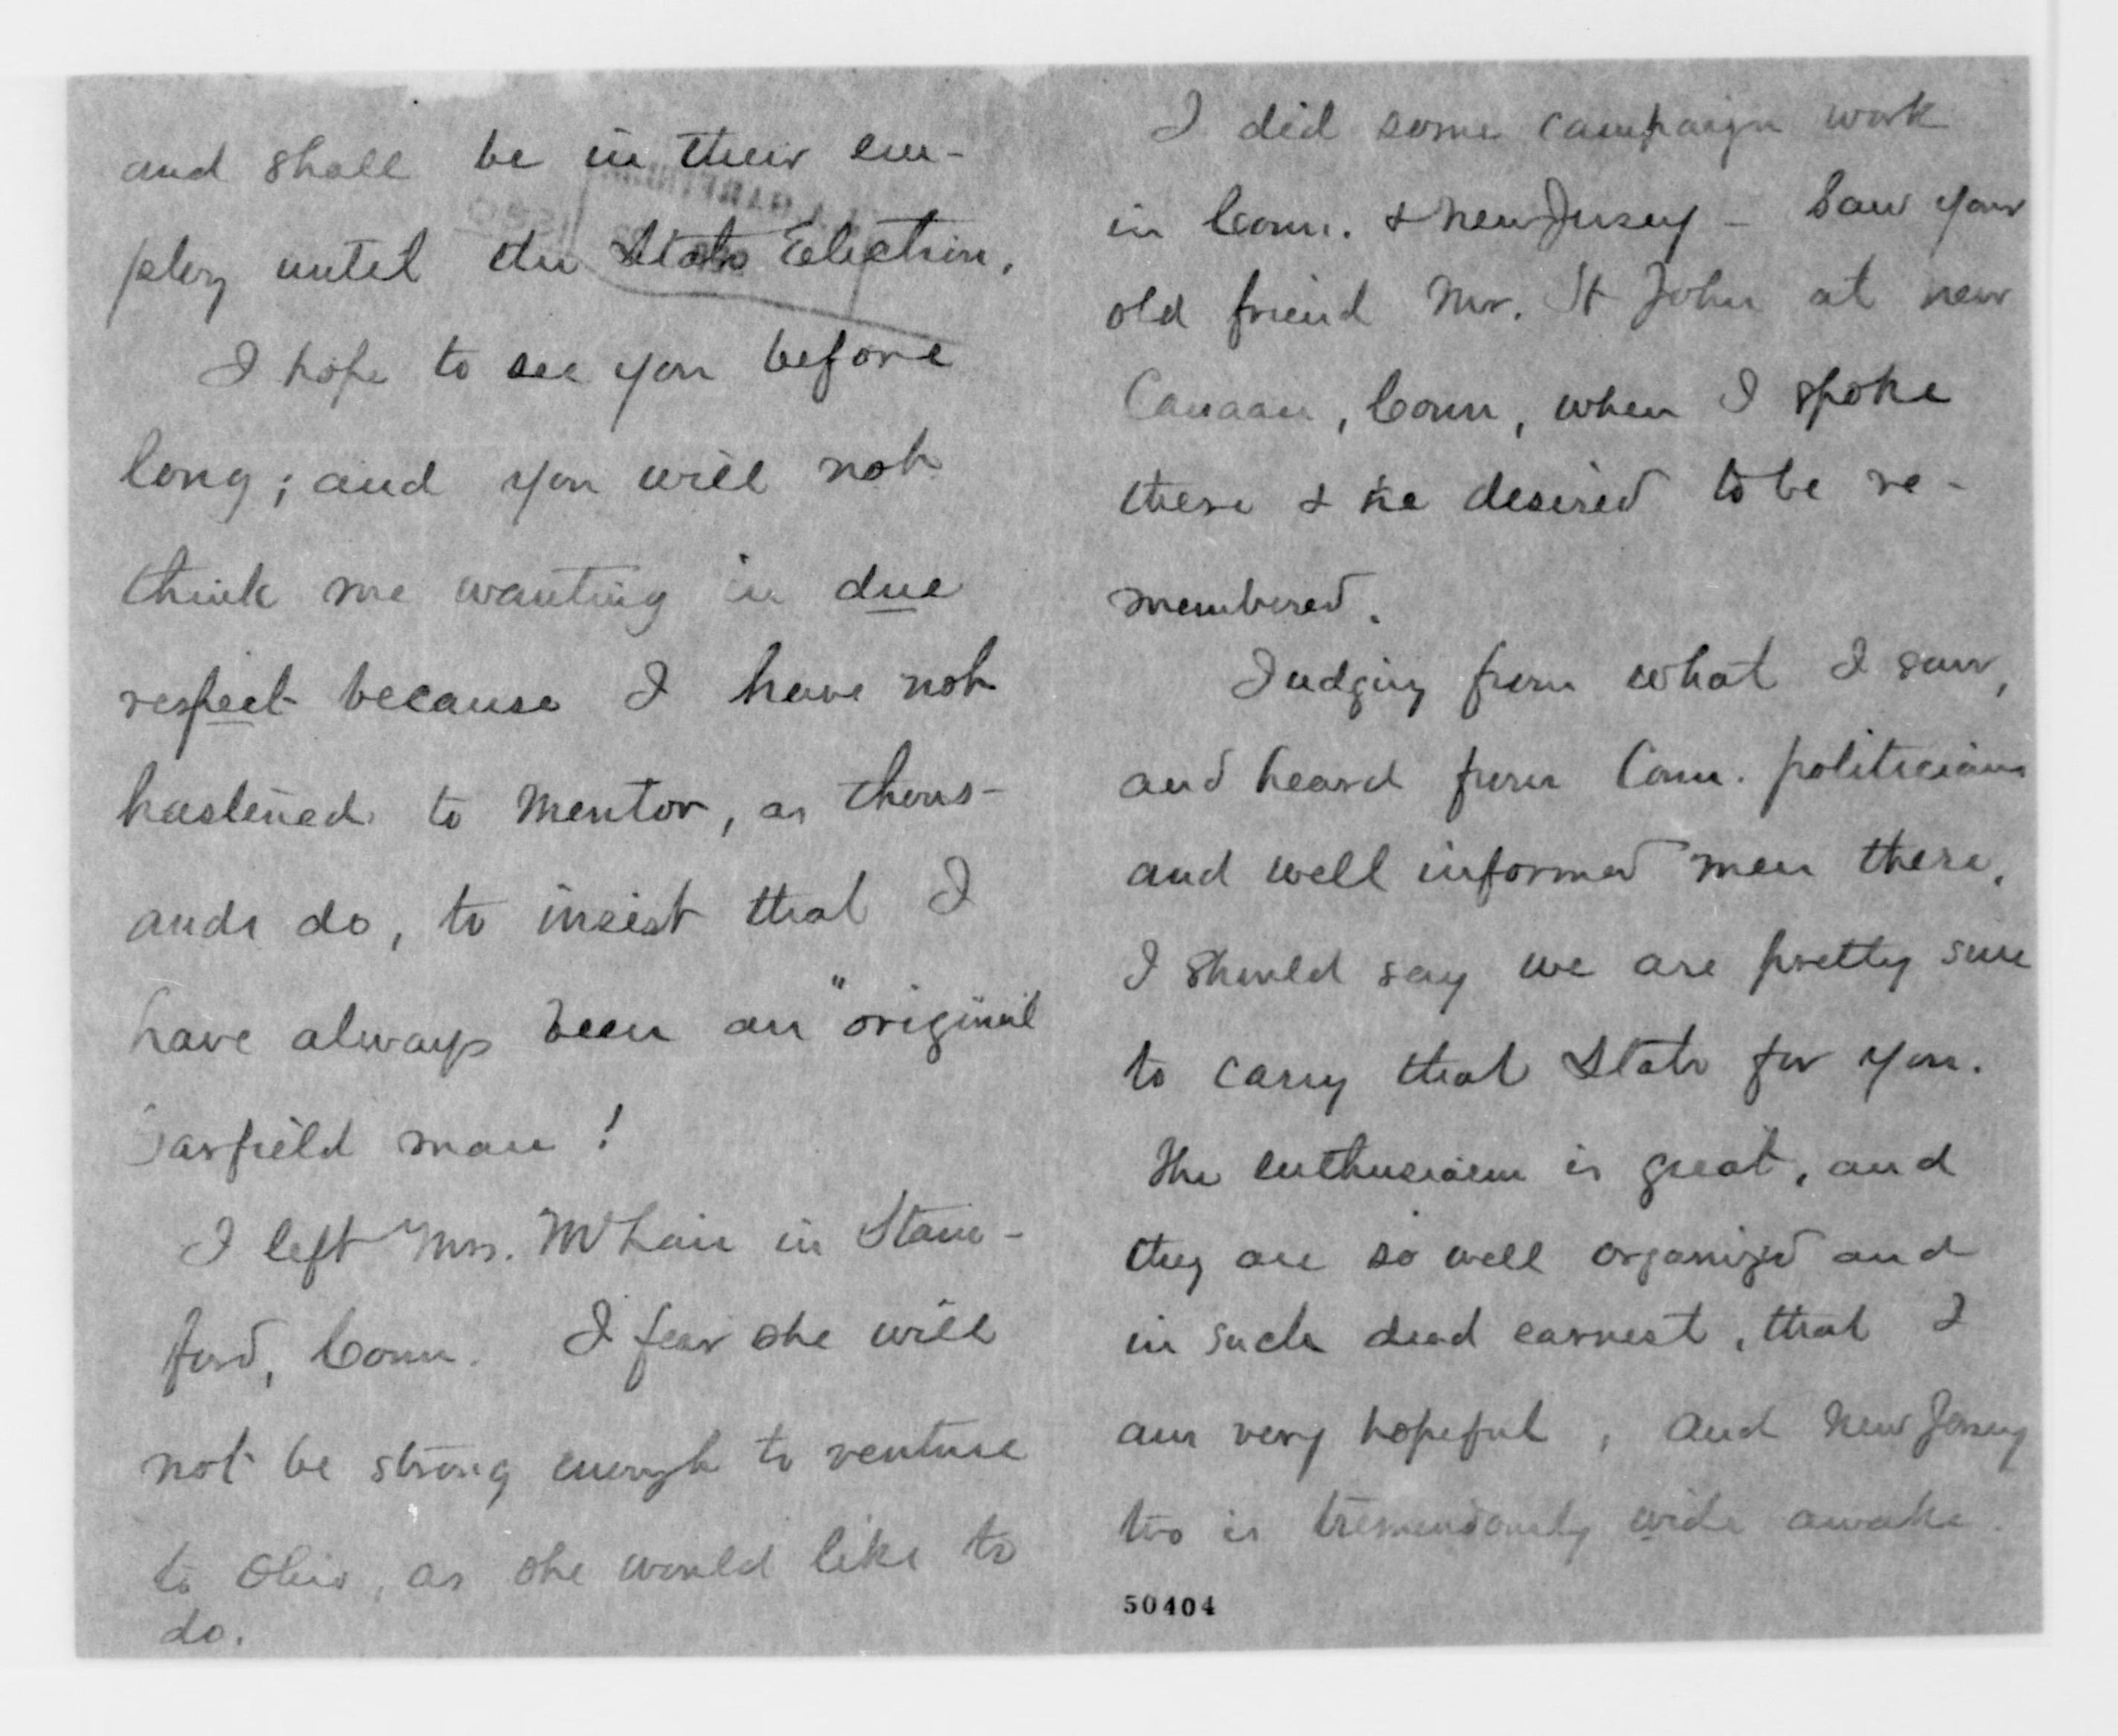 and shall be in their em-
ploy until the State Election.
I hope to see you before
long; and you will not
think me wanting in due
respect because I have not
hastened to Mentor, as thous-
ands do, to insist that I
have always been an "original
Garfield man!
I left Mrs. in Stam-
ford, Conn. I fear she will
not be strong enough to venture
to Ohio, as she would like to
do.
I did some campaign work
in Conn. & New Jersey - Saw your
old friend Mr. St John at New
Canaan, Conn, when I spoke
there & he desired to be re-
membered.
Judging from what I saw,
and heard from Conn. politicians
and well informed men there,
I should say we are pretty sure
to carry that State for you.
The enthusiasm is great, and
they are so well organized and
in such dead earnest, that I
am very hopeful, and New Jersey
too is tremendously wide awake.
50404